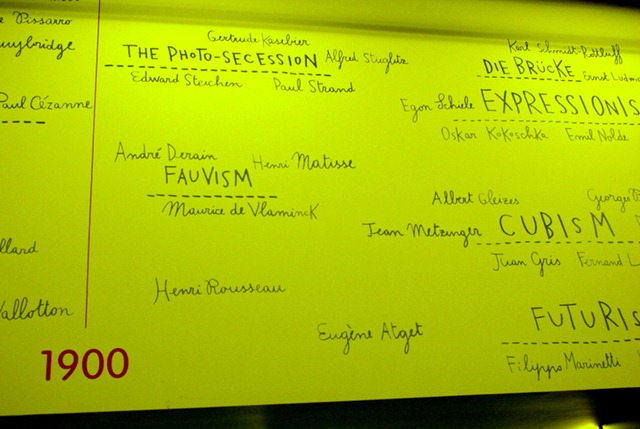 Pissarro
uybridge
Paul Cézanne
llard
allotton
1900
Gertrude Kasebier
THE PHOTO-SECESSION
Alfred Stieglitz
Edward Steichen
Paul Strand
André Derain
Henri Matisse
FAUVISM
Maurice de Vlaminck
Henri Rousseau
Eugène Atget
Karl Schmidt-Rottluff
DIE BRÜCKE
Ernst Ludw
Egon Schiele
EXPRESSIONIS
Oskar Kokoschka
Emil Nolde
Albert Gleizes
Georges
Jean Metzinger
CUBISM
Juan Gris
Fernand L
FUTURIS
Filippo Marinetti